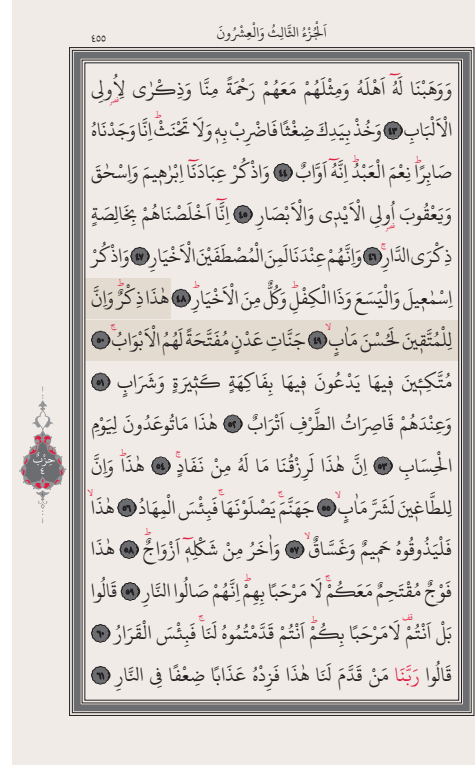 اَلْجُزْءُ الثَّالِثُ وَالْعِشْرُونَ
٤٥٥
وَوَهَبْنَا لَهُٓ اَهْلَهُ وَمِثْلَهُمْ مَعَهُمْ رَحْمَةً مِنَّا وَذِكْرٰى لِاُو۬لِي
الْاَلْبَابِ ﴿٤٣﴾ وَخُذْ بِيَدِكَ ضِغْثًا فَاضْرِبْ بِه۪ وَلَا تَحْنَثْۜ اِنَّا وَجَدْنَاهُ
صَابِرًاۜ نِعْمَ الْعَبْدُۜ اِنَّهُٓ اَوَّابٌ ﴿٤٤﴾ وَاذْكُرْ عِبَادَنَٓا اِبْرٰه۪يمَ وَاِسْحٰقَ
وَيَعْقُوبَ اُو۬لِي الْاَيْد۪ي وَالْاَبْصَارِ ﴿٤٥﴾ اِنَّٓا اَخْلَصْنَاهُمْ بِخَالِصَةٍ
ذِكْرَى الدَّارِۚ ﴿٤٦﴾ وَاِنَّهُمْ عِنْدَنَا لَمِنَ الْمُصْطَفَيْنَ الْاَخْيَارِ ﴿٤٧﴾ وَاذْكُرْ
اِسْمٰع۪يلَ وَالْيَسَعَ وَذَا الْكِفْلِۜ وَكُلٌّ مِنَ الْاَخْيَارِۜ ﴿٤٨﴾ هٰذَا ذِكْرٌۜ وَاِنَّ
لِلْمُتَّق۪ينَ لَحُسْنَ مَاٰبٍۙ ﴿٤٩﴾ جَنَّاتِ عَدْنٍ مُفَتَّحَةً لَهُمُ الْاَبْوَابُۚ ﴿٥٠﴾
مُتَّكِـ۪ٔينَ ف۪يهَا يَدْعُونَ ف۪يهَا بِفَاكِهَةٍ كَث۪يرَةٍ وَشَرَابٍ ﴿٥١﴾
وَعِنْدَهُمْ قَاصِرَاتُ الطَّرْفِ اَتْرَابٌ ﴿٥٢﴾ هٰذَا مَا تُوعَدُونَ لِيَوْمِ
الْحِسَابِ ﴿٥٣﴾ اِنَّ هٰذَا لَرِزْقُنَا مَا لَهُ مِنْ نَفَادٍۚ ﴿٥٤﴾ هٰذَاۜ وَاِنَّ
لِلطَّاغ۪ينَ لَشَرَّ مَاٰبٍۙ ﴿٥٥﴾ جَهَنَّمَۚ يَصْلَوْنَهَاۚ فَبِئْسَ الْمِهَادُ ﴿٥٦﴾ هٰذَاۙ
فَلْيَذُوقُوهُ حَم۪يمٌ وَغَسَّاقٌۙ ﴿٥٧﴾ وَاٰخَرُ مِنْ شَكْلِه۪ٓ اَزْوَاجٌۜ ﴿٥٨﴾ هٰذَا
فَوْجٌ مُقْتَحِمٌ مَعَكُمْۚ لَا مَرْحَبًا بِهِمْۜ اِنَّهُمْ صَالُوا النَّارِ ﴿٥٩﴾ قَالُوا
بَلْ اَنْتُمْ۠ لَا مَرْحَبًا بِكُمْۜ اَنْتُمْ قَدَّمْتُمُوهُ لَنَاۚ فَبِئْسَ الْقَرَارُ ﴿٦٠﴾
قَالُوا رَبَّنَا مَنْ قَدَّمَ لَنَا هٰذَا فَزِدْهُ عَذَابًا ضِعْفًا فِي النَّارِ ﴿٦١﴾
حِزْب
٤